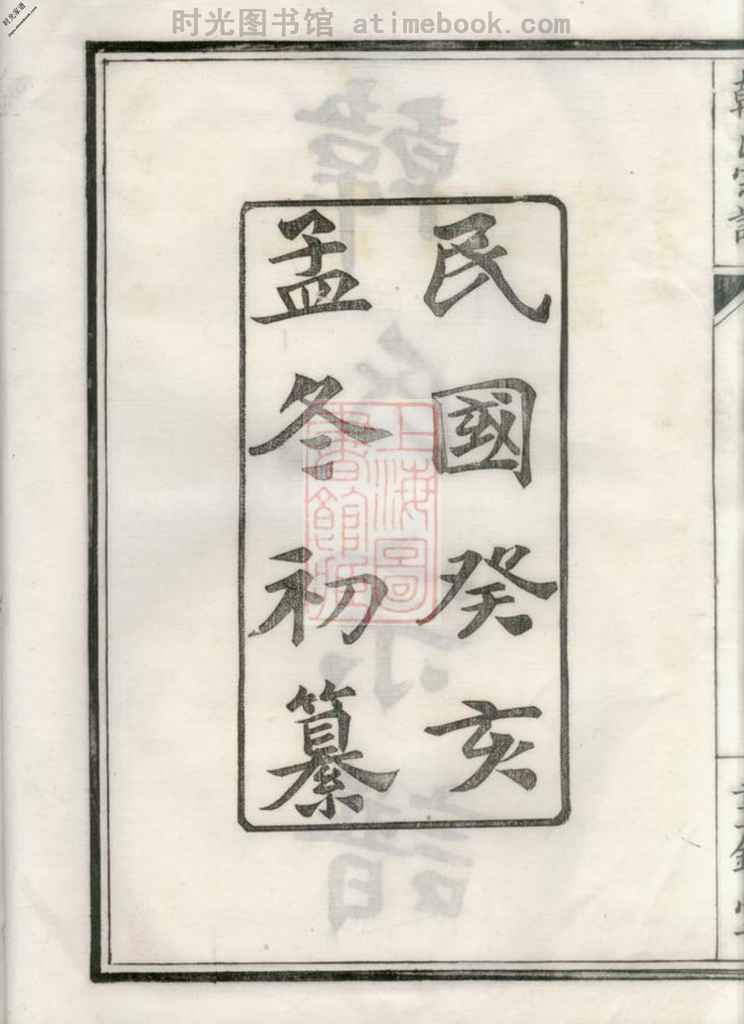 时光图书馆 atimebook.com
民國癸亥
孟冬初纂
上海圖書館藏